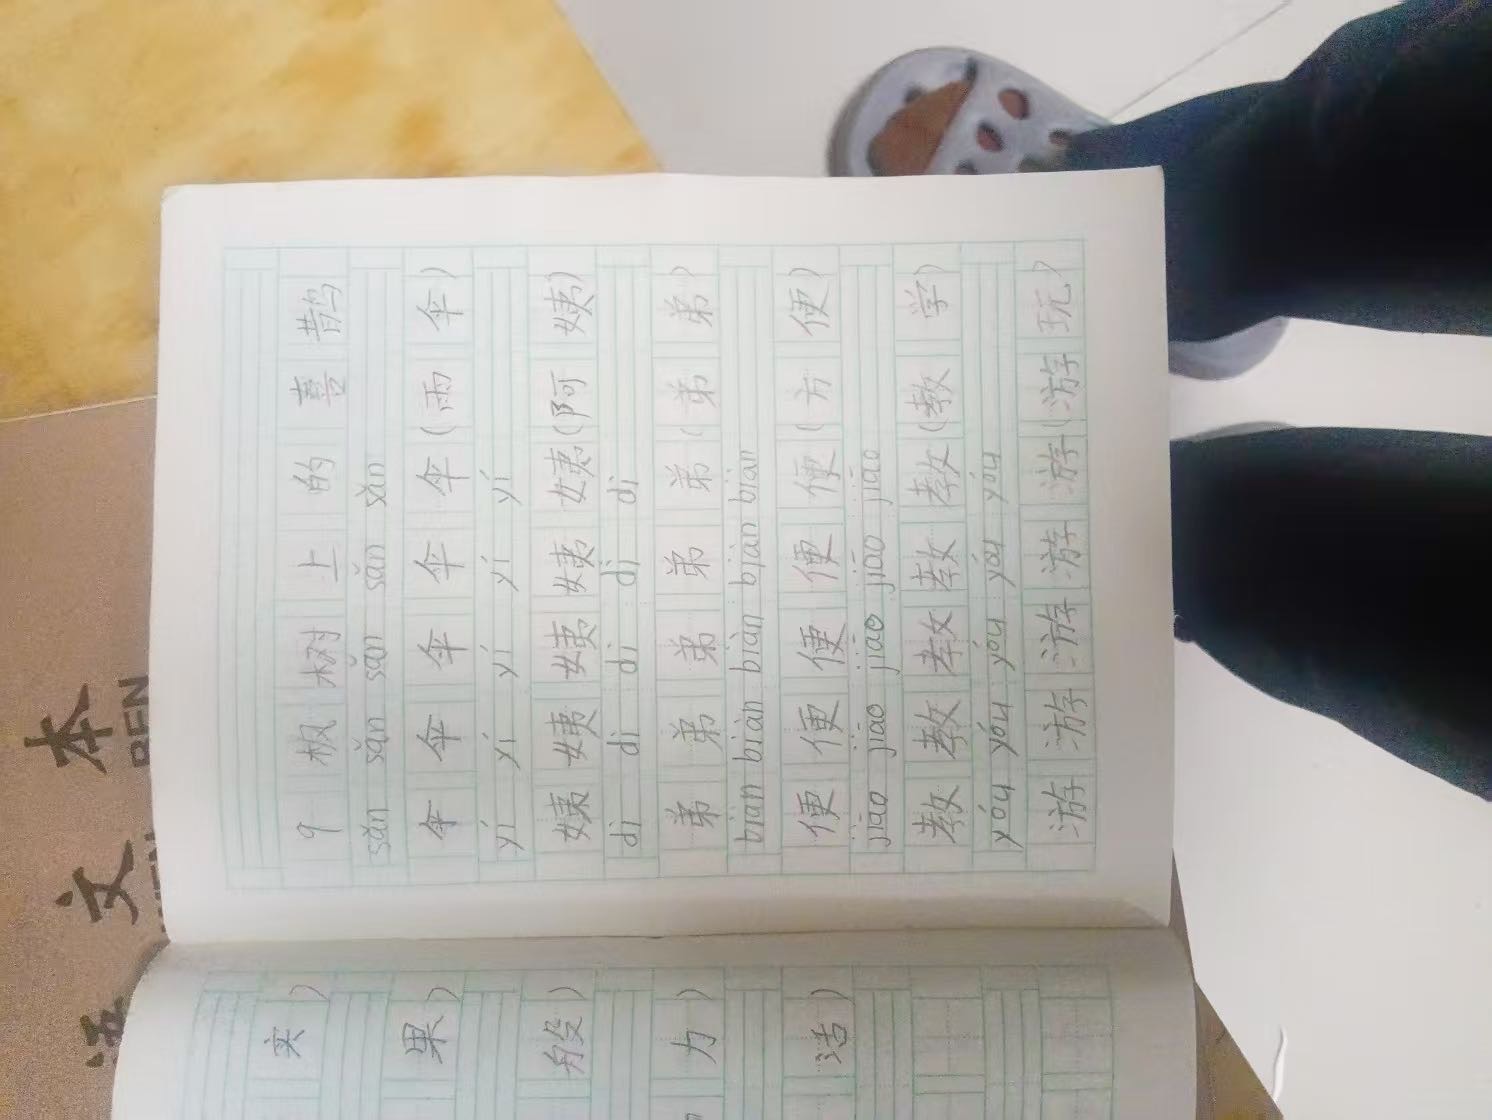 文 本
BEN
实)
果)
般)
力)
9 枫树上的喜鹊
sǎn sǎn sǎn sǎn sǎn
伞 伞 伞 伞 伞(雨伞)
yí yí yí yí yí
姨 姨 姨 姨 姨(阿姨)
dì dì dì dì dì
弟 弟 弟 弟 弟(弟弟)
biàn biàn biàn biàn biàn
便 便 便 便 便(方便)
jiāo jiāo jiāo jiāo jiāo
教 教 教 教 教(教学)
yóu yóu yóu yóu yóu
游 游 游 游 游(游玩)